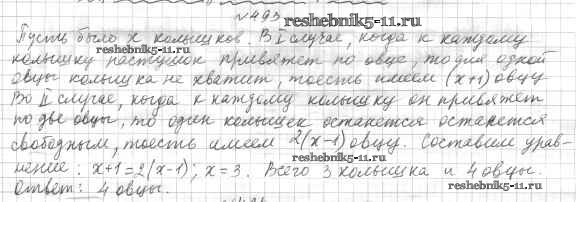 №493
reshebnik5-11.ru
Пусть было х колышков. В I случае, когда к каждому
колышку пастушок привяжет по овце, то для одной
reshebnik5-11.ru
овцы колышка не хватит, тоесть имеем (х+1) овцу
Во II случае, когда к каждому колышку он привяжет
по две овцы, то один колышек останется останется
свободным, тоесть имеем 2(х-1) овцу. Составим урав-
reshebnik5-11.ru
нение: х+1=2(х-1); х=3. Всего 3 колышка и 4 овцы.
Ответ: 4 овцы.
reshebnik5-11.ru